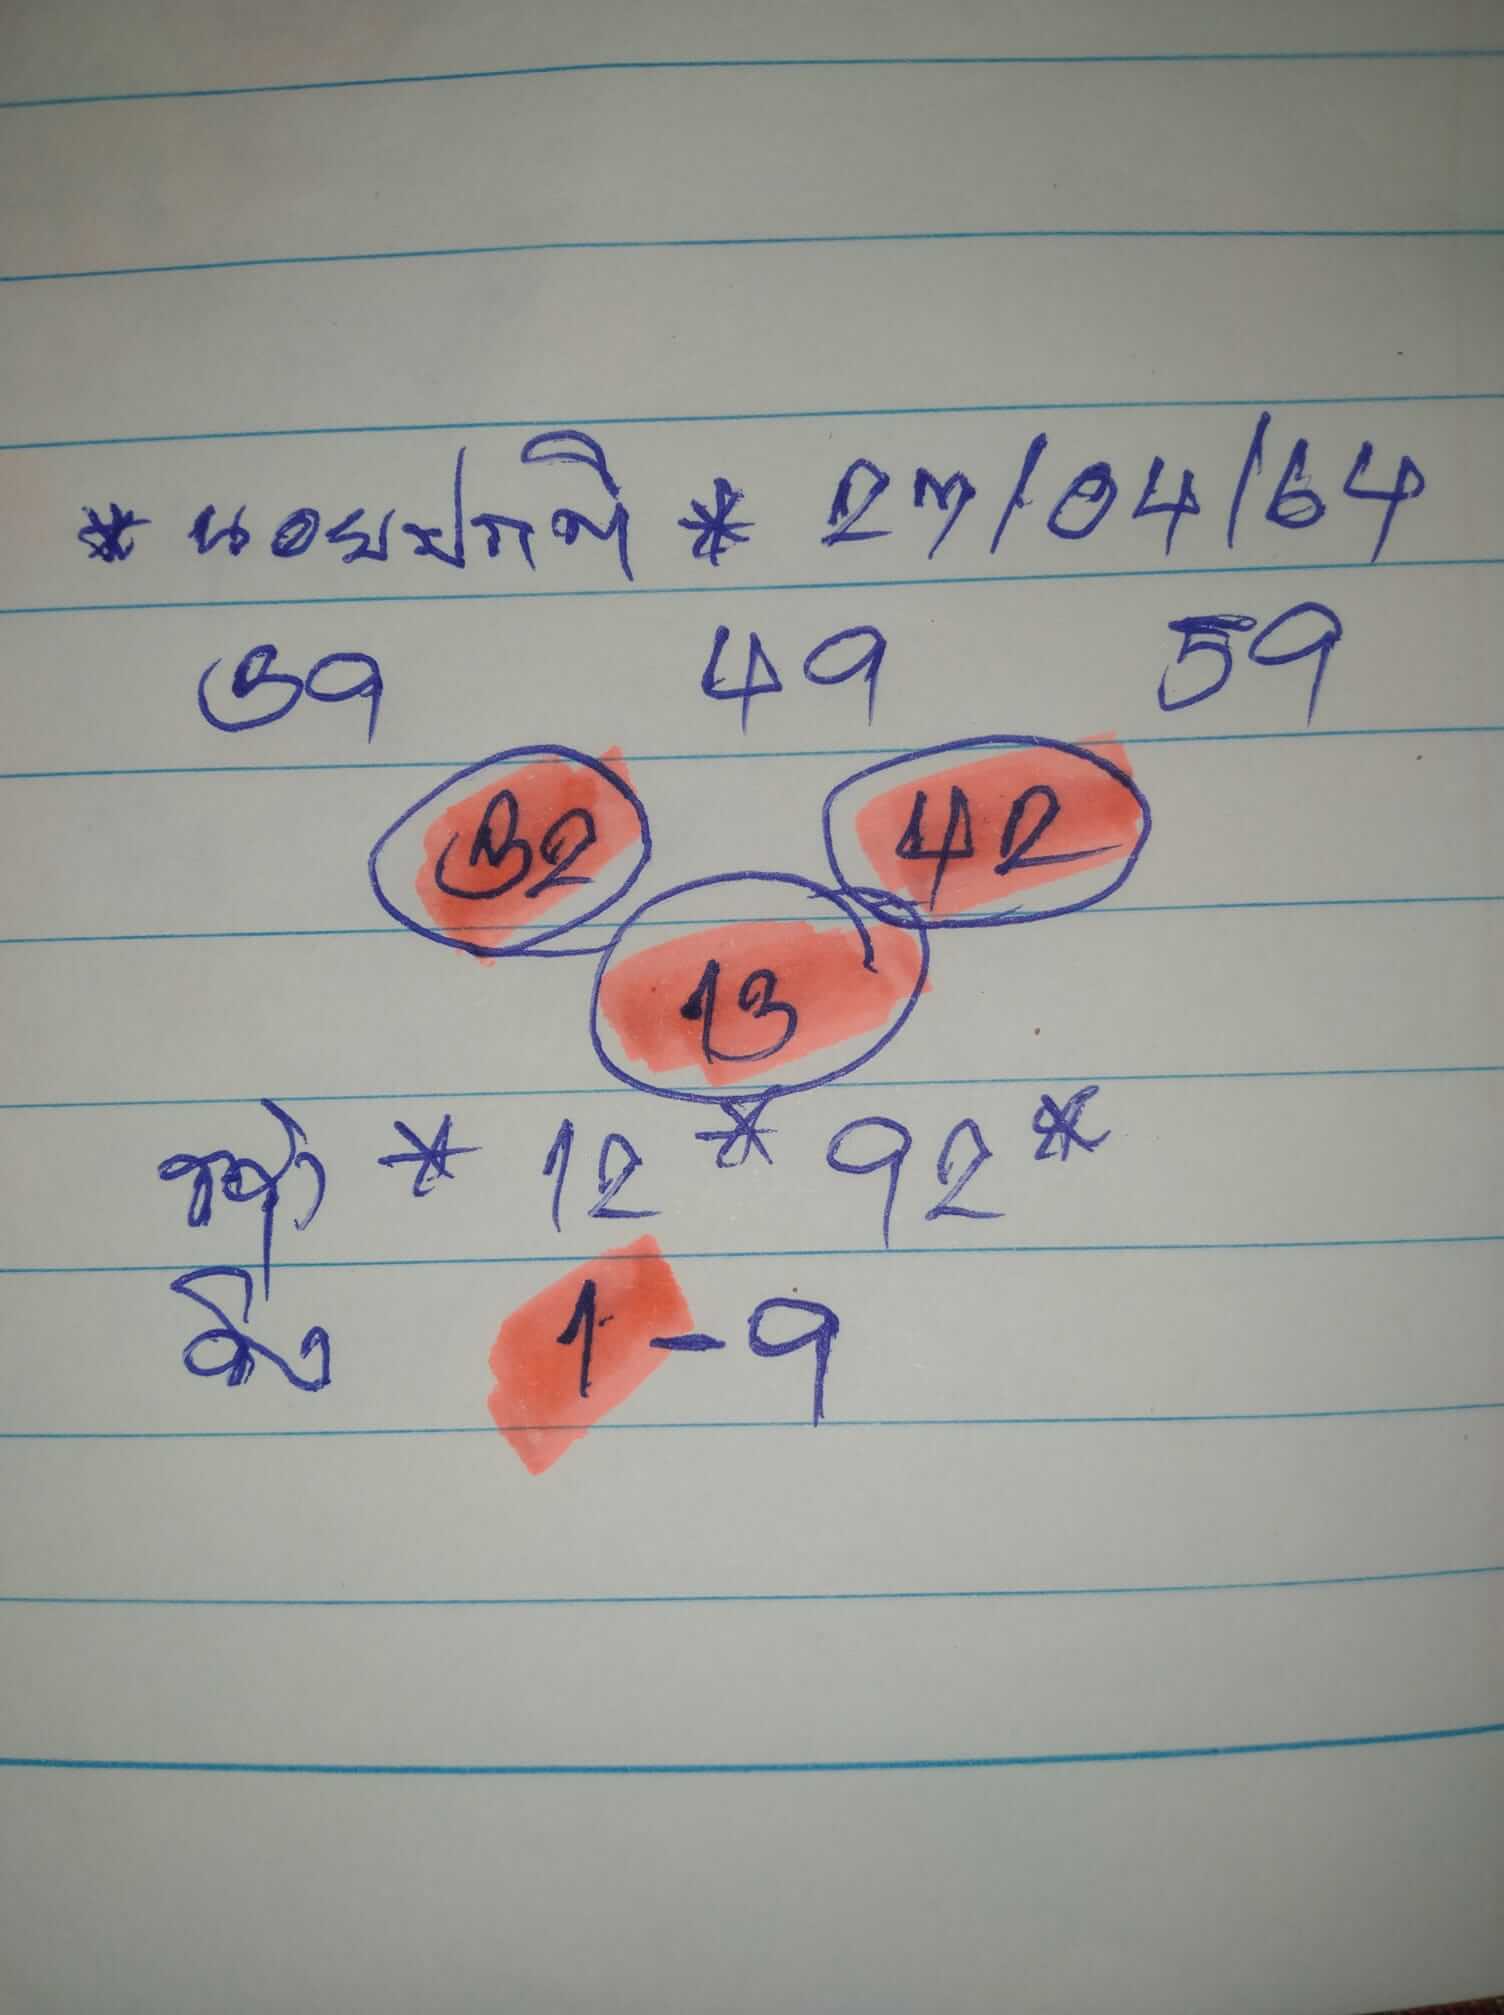 * ฮอยปกติ * 27/04/64
39 49 59
32 42
13
* 12 * 92 *
วิ่ง 1-9